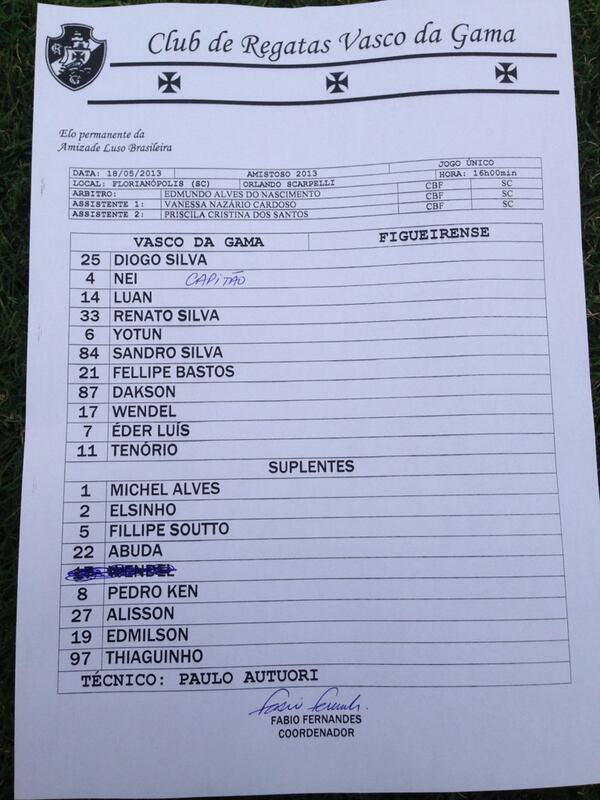 Club de Regatas Vasco da Gama
Elo permanente da
Amizade Luso Brasileira
JOGO ÚNICO
DATA: 18/05/2013 AMISTOSO 2013 HORA: 16h00min
LOCAL: FLORIANÓPOLIS (SC) ORLANDO SCARPELLI CBF SC
ARBITRO: EDMUNDO ALVES DO NASCIMENTO CBF SC
ASSISTENTE 1: VANESSA NAZÁRIO CARDOSO CBF SC
ASSISTENTE 2: PRISCILA CRISTINA DOS SANTOS
VASCO DA GAMA FIGUEIRENSE
25 DIOGO SILVA
4 NEI CAPITÃO
14 LUAN
33 RENATO SILVA
6 YOTUN
84 SANDRO SILVA
21 FELLIPE BASTOS
87 DAKSON
17 WENDEL
7 ÉDER LUÍS
11 TENÓRIO
SUPLENTES
1 MICHEL ALVES
2 ELSINHO
5 FILLIPE SOUTTO
22 ABUDA
17 WENDEL
8 PEDRO KEN
27 ALISSON
19 EDMILSON
97 THIAGUINHO
TÉCNICO: PAULO AUTUORI
FABIO FERNANDES
COORDENADOR